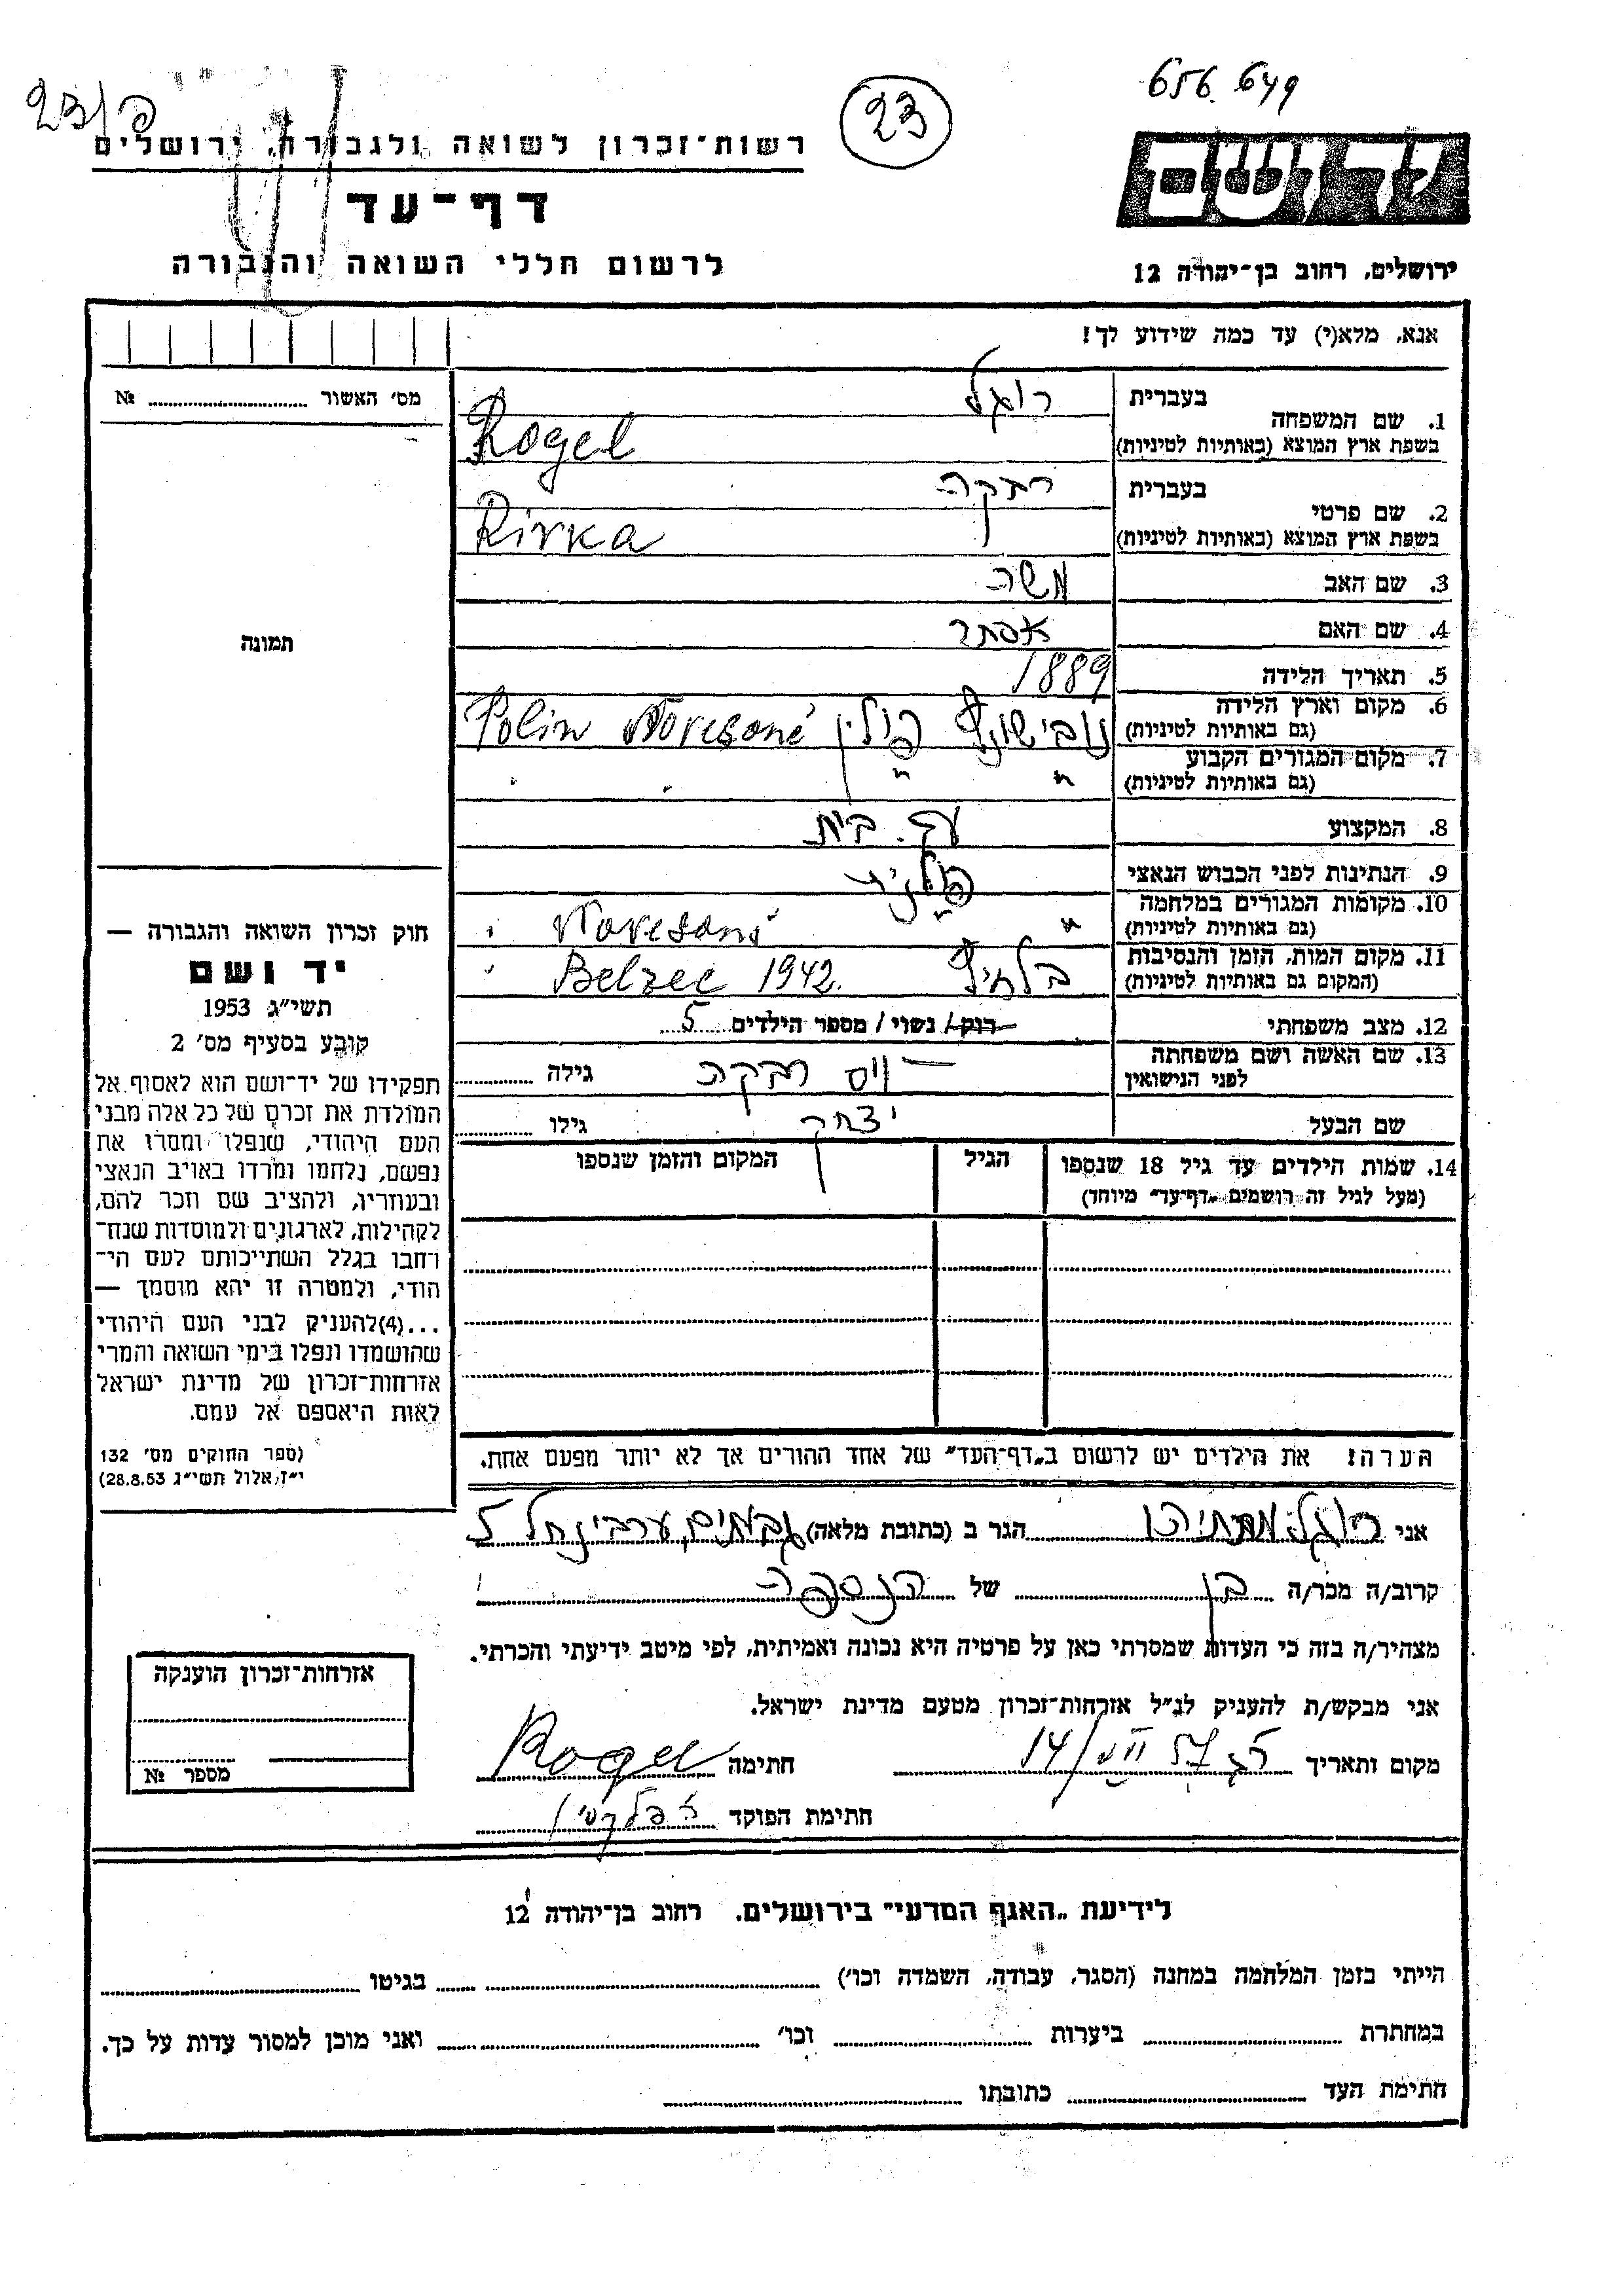 656.649
23
23/כ
רשות־זכרון לשואה ולגבורה, ירושלים
דף־עד
לרשום חללי השואה והגבורה
יד ושם
ירושלים, רחוב בן־יהודה 12
אנא, מלא(י) עד כמה שידוע לך!
מס׳ האשור № 
תמונה
בעברית רוגל
1. שם המשפחה
בשפת ארץ המוצא (באותיות לטיניות) Rogel
בעברית רבקה
2. שם פרטי
בשפת ארץ המוצא (באותיות לטיניות) Rivka
3. שם האב משה
4. שם האם אסתר
5. תאריך הלידה 1889
6. מקום וארץ הלידה
(גם באותיות לטיניות) פולין Polin
7. מקום המגורים הקבוע
(גם באותיות לטיניות) " "
8. המקצוע עק. בית
9. הנתינות לפני הכבוש הנאצי פולנית
10. מקומות המגורים במלחמה
(גם באותיות לטיניות) "
11. מקום המות, הזמן והנסיבות
(המקום גם באותיות לטיניות) Belzec 1942.
12. מצב משפחתי רוק/ נשוי/ מספר הילדים 5
13. שם האשה ושם משפחתה
לפני הנישואין ויס רבקה גילה
שם הבעל יצחק גילו
14. שמות הילדים עד גיל 18 שנספו
(מעל לגיל זה רושמים „דף־עד״ מיוחד)
הגיל
המקום והזמן שנספו
הערה! את הילדים יש לרשום ב„דף־העד״ של אחד ההורים אך לא יותר מפעם אחת.
חוק זכרון השואה והגבורה —
יד ושם
תשי״ג 1953
קובע בסעיף מס׳ 2
תפקידו של יד־ושם הוא לאסוף אל
המולדת את זכרם של כל אלה מבני
העם היהודי, שנפלו ומסרו את
נפשם, נלחמו ומרדו באויב הנאצי
ובעוזריו, ולהציב שם וזכר להם,
לקהילות, לארגונים ולמוסדות שנח־
רבו בגלל השתייכותם לעם הי־
הודי, ולמטרה זו יהא מוסמך —
...(4)להעניק לבני העם היהודי
שהושמדו ונפלו בימי השואה והמרי
אזרחות־זכרון של מדינת ישראל
לאות היאספם אל עמם.
(ספר החוקים מס׳ 132
י״ז, אלול תשי״ג 28.8.53)
אני רוגל מתתיהו הגר ב (כתובת מלאה) גבעתיים, ערבי נחל 5
קרוב/ה מכר/ה בן של הנספה
מצהיר/ה בזה כי העדות שמסרתי כאן על פרטיה היא נכונה ואמיתית, לפי מיטב ידיעתי והכרתי.
אני מבקש/ת להעניק לנ״ל אזרחות־זכרון מטעם מדינת ישראל.
מקום ותאריך חתימה Rogel
חתימת הפוקד
אזרחות־זכרון הוענקה
מספר №
לידיעת „האגף המדעי״ בירושלים. רחוב בן־יהודה 12
הייתי בזמן המלחמה במחנה (הסגר, עבודה, השמדה וכו׳) בגיטו
במחתרת ביערות וכו׳ ואני מוכן למסור עדות על כך.
חתימת העד כתובתו